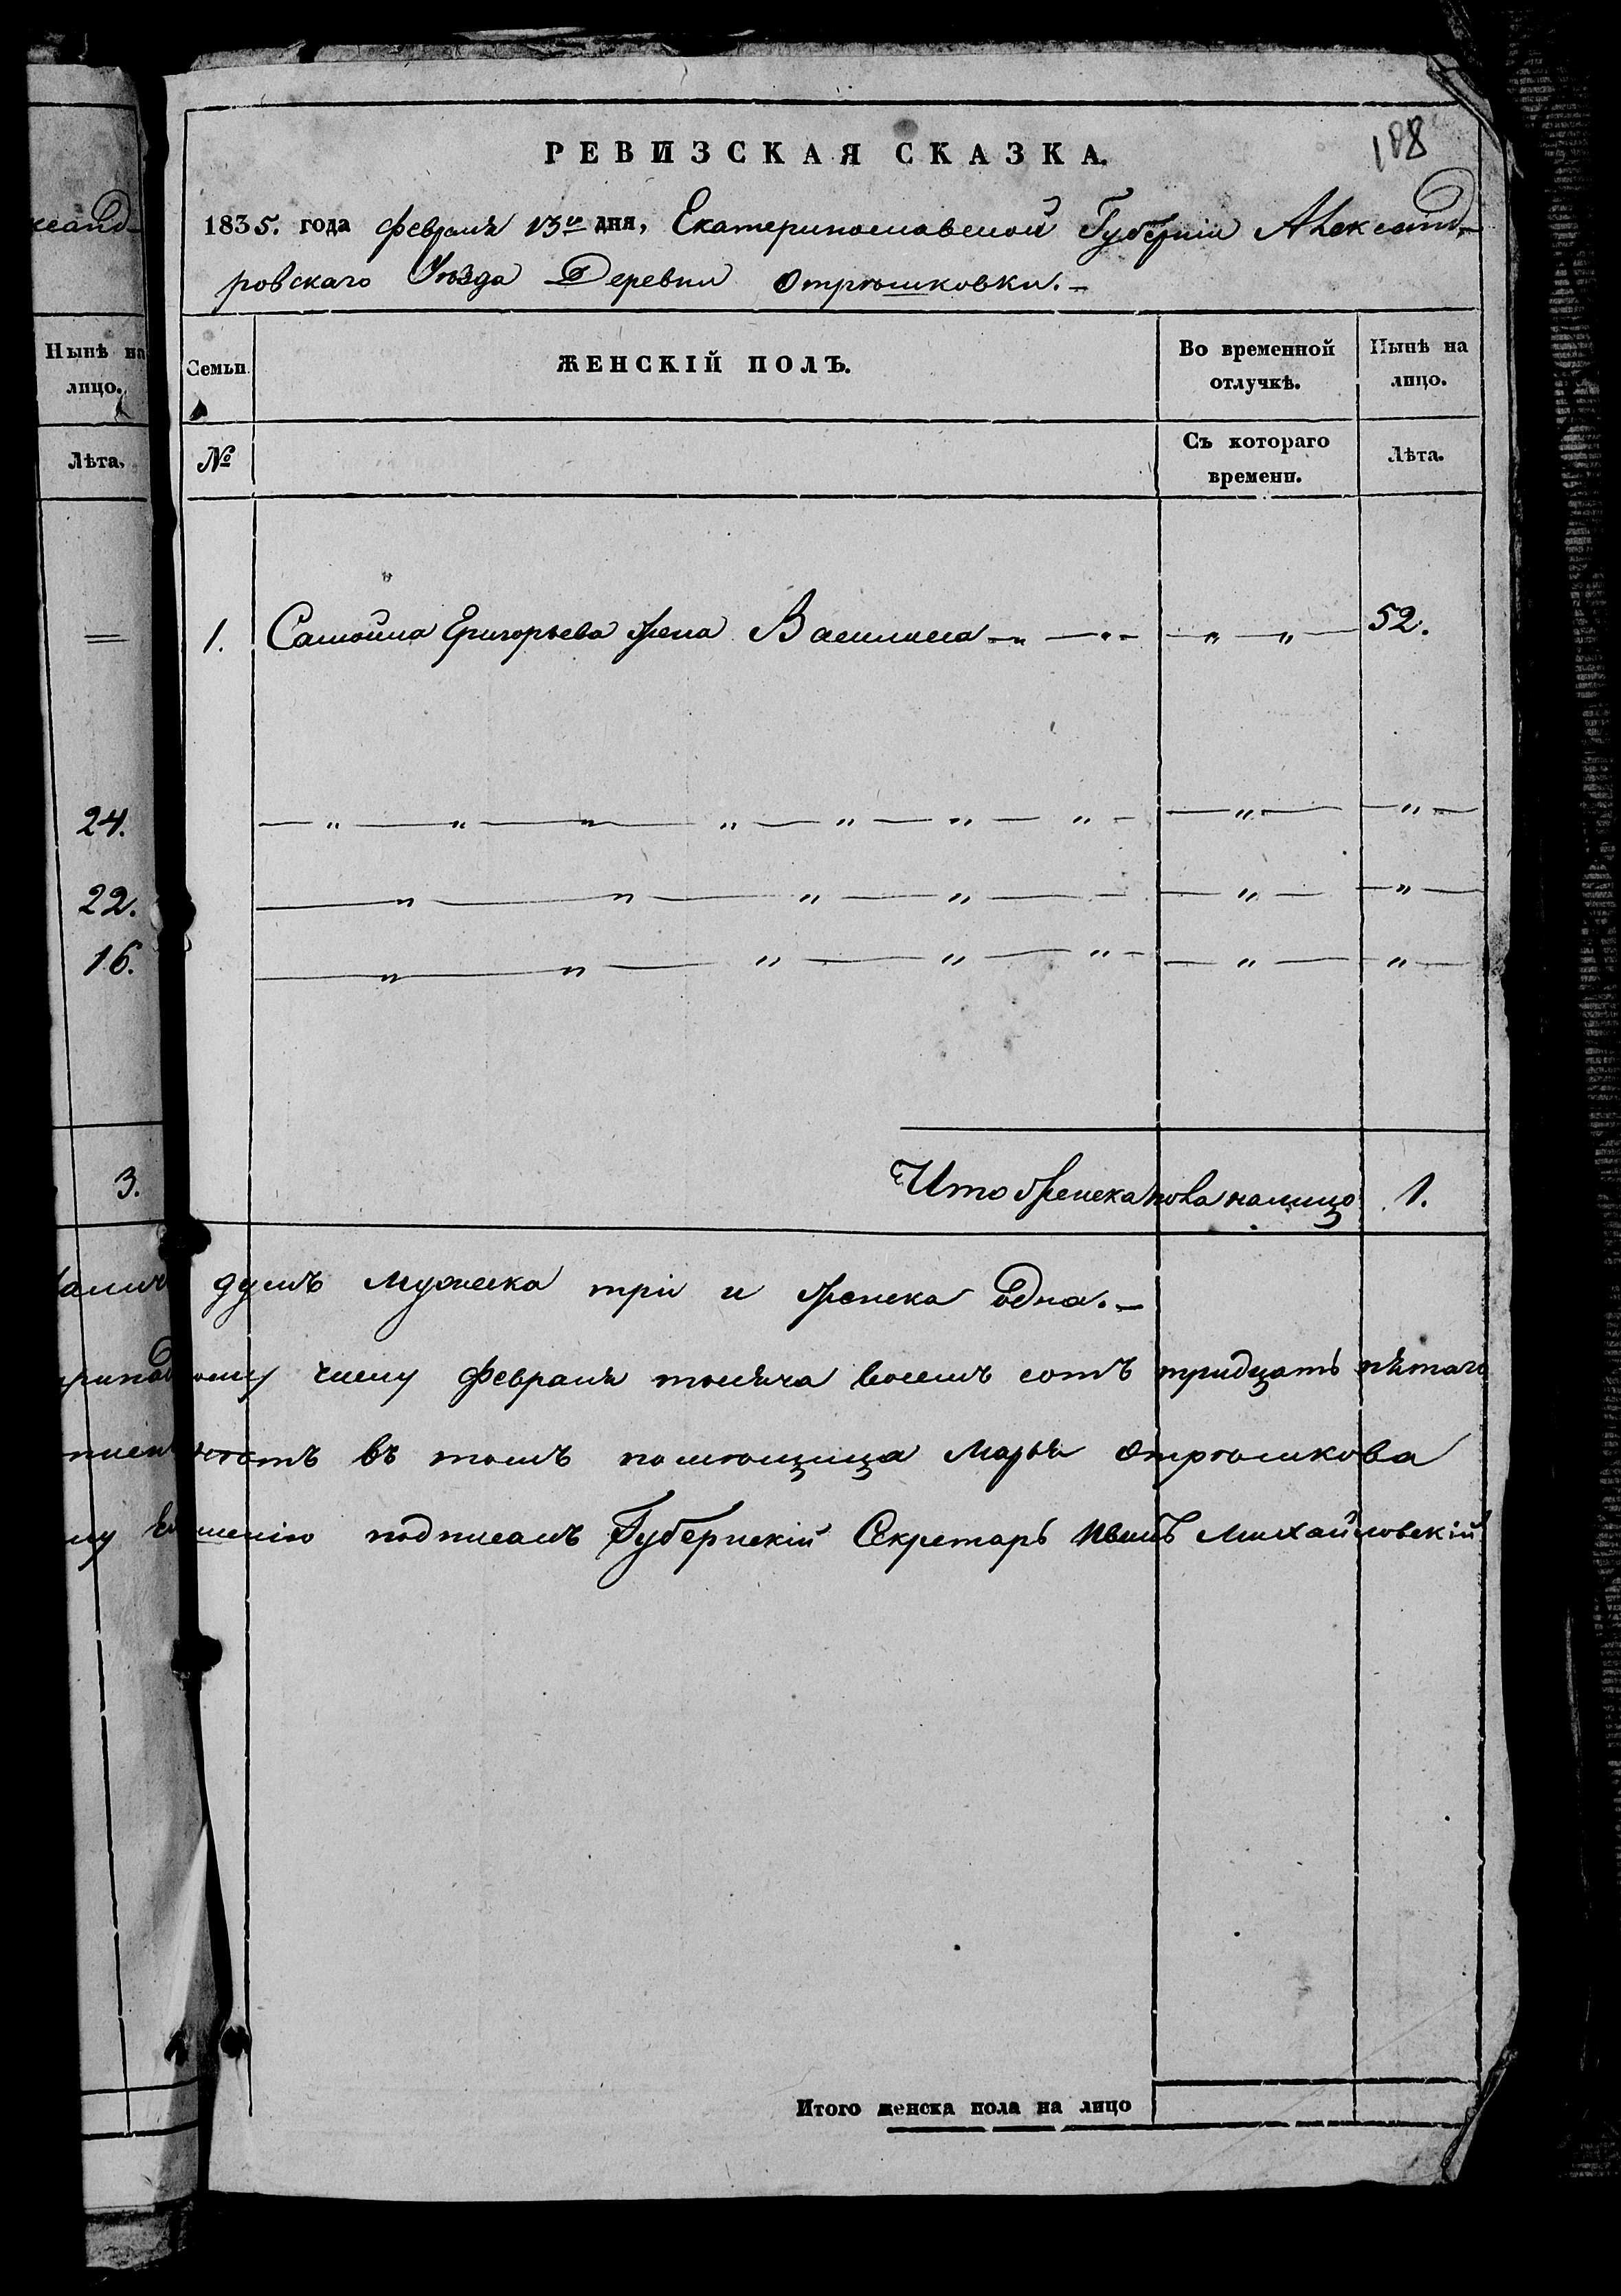 188
РЕВИЗСКАЯ СКАЗКА.
1835. года февраля 13го дня, Екатеринославской Губерніи Александ-
ровскаго Уѣзда Деревни Отрѣшковки.
ксанд-
Нынѣ на лицо.
Лѣта.
24.
22.
16.
3.
Семьи. ЖЕНСКІЙ ПОЛЪ. Во временной отлучкѣ. Нынѣ на лицо.
№ Съ котораго времени. Лѣта.
1. Самойла Григорьева жена Василиса 52.
Итого женска пола налицо 1.
душъ мужеска три и женска одна.
ому числу февраля тысяча восемъ сотъ тридцать пятаго
въ томъ помѣщица Марья Отрѣшкова
му ея прошенію подписалъ Губернскій Секретарь Иванъ Михайловскій
Итого женска пола на лицо